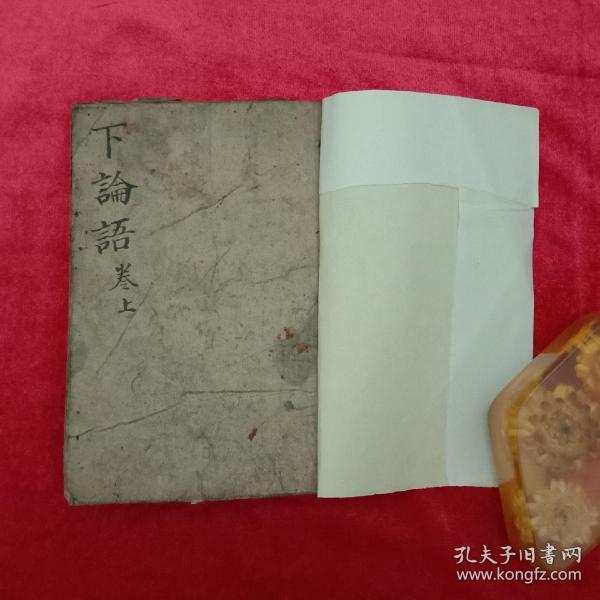 下論語
卷上
孔夫子旧書网
www.kongfz.com